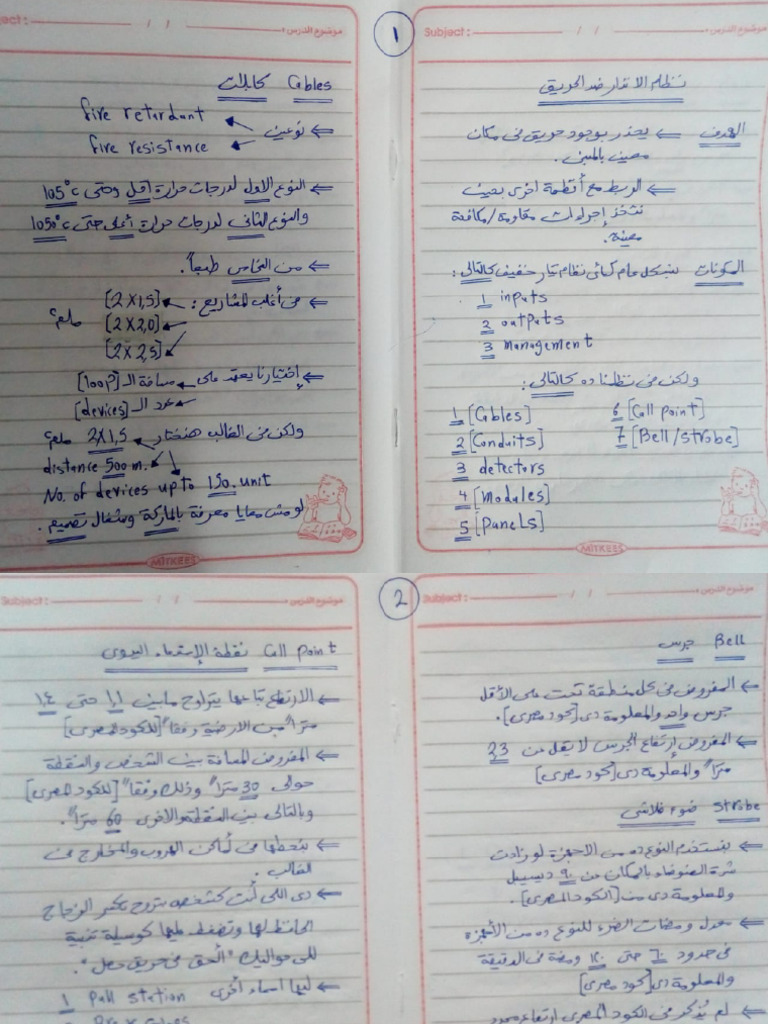 موضوع الدرس: / / Subject:
1
نظام الانذار ضد الحريق
الهدف ⇐ يحذر بوجود حريق فى مكان
معين بالمبنى.
⇐ الربط مع أنظمة اخرى بحيث
نتخذ إجراءات مقاومة/مكافحة
معينة.
المكونات بشكل عام كأى نظام تيار خفيف كالتالى:
1 inputs
2 outputs
3 management
ولكن فى نظامنا ده كالتالى:
1 [Cables]
6 [Call point]
2 [Conduits]
7 [Bell/strobe]
3 detectors
4 [modules]
5 [panels]
MITKEES
موضوع الدرس: / / ject:
Cables كابلات
⇐ نوعين
fire retardant
fire resistance
⇐ النوع الاول لدرجات حرارة أقل وحتى 105°c
والنوع الثانى لدرجات حرارة أعلى حتى 1050°c
⇐ من النحاس طبعاً.
⇐ فى أغلب المشاريع:
[2X1,5]
[2X2,0] ملم٢
[2X2,5]
⇐ إختيارنا يعتمد على مسافة الـ [loop]
عدد الـ [devices]
ولكن فى الغالب هنختار 2X1,5 ملم٢
distance 500 m.
No. of devices up to 150. unit
لو مش معايا معرفة بالماركة وشغال تصميم.
MITKEES
موضوع الدرس: / / Subject:
2
Bell جرس
⇐ المفروض فى كل منطقة تحت على الأقل
جرس واحد والمعلومة دى [كود مصرى].
⇐ المفروض إرتفاع الجرس لا يقل عن 23
متراً والمعلومة دى [كود مصرى]
Strobe ضوء فلاشى
⇐ بنستخدم النوع ده من الاجهزة لو زادت
شدة الضوضاء بالمكان عن ٩٠ ديسيبل
والمعلومة دى من [الكود المصرى].
⇐ معدل ومضات الضوء للنوع ده من الأجهزة
فى حدود ٦٠ حتى ١٢٠ ومضة فى الدقيقة
والمعلومة دى [كود مصرى]
⇐ لم يُذكر فى الكود المصرى ارتفاع محدد
موضوع الدرس: / / Subject:
Call point نقطة الإستدعاء اليدوى
⇐ الارتفاع بتاعها يتراوح مابين ١,١ حتى ١,٤
متراً من الارضية وفقاً [للكود المصرى]
⇐ المفروض المسافة بين الشخص والنقطة
حوالى 30 متراً وذلك وفقاً [للكود المصرى]
وبالتالى بين النقطة والاخرى 60 متراً.
⇐ بنحطها فى أماكن الهروب والمخارج فى
الغالب.
⇐ دى اللى أنت كشخص بتروح تكسر الزجاج
الحافظ لها وتضغط عليها كوسيلة تنبية
للى حواليك "الحق فى حريق حصل".
⇐ ليها أسماء أخرى
1 Pull station